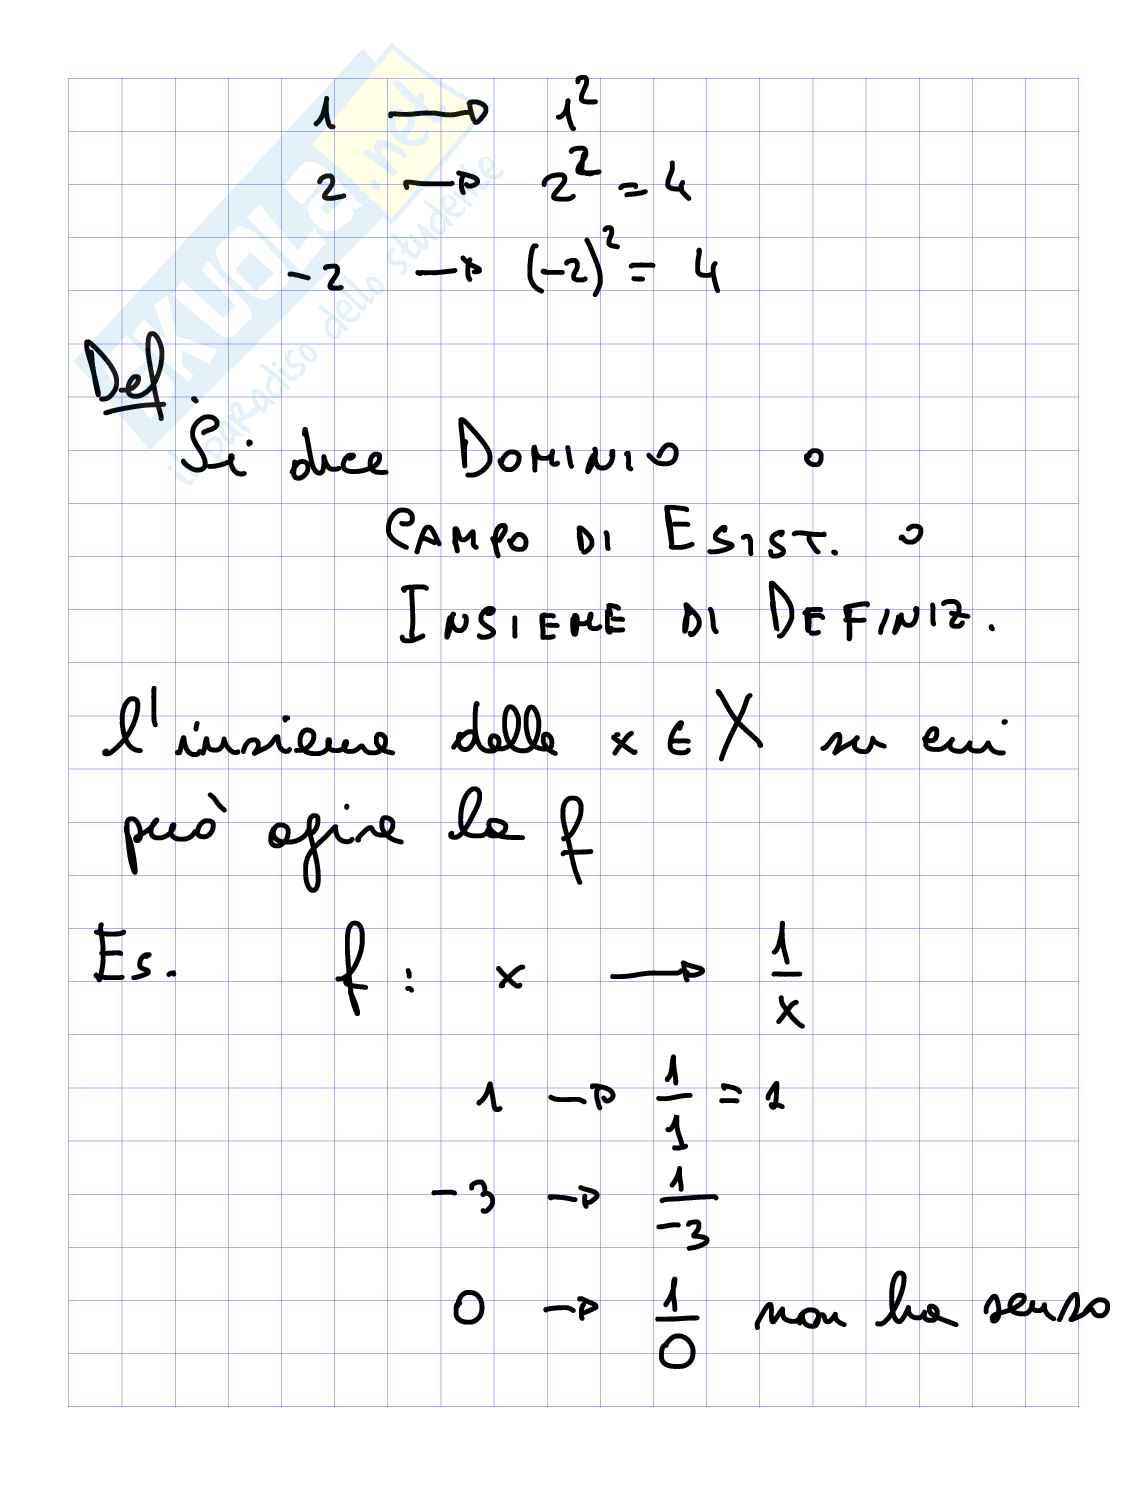 1 → 1²
2 → 2² = 4
-2 → (-2)² = 4
Def.
Si dice DOMINIO o
CAMPO DI ESIST. o
INSIEME DI DEFINIZ.
l'insieme delle x ∈ X su cui
può agire la f
Es. f : x → 1/x
1 → 1/1 = 1
-3 → 1/-3
0 → 1/0 non ha senso
SKUOLA.net
il paradiso dello studente